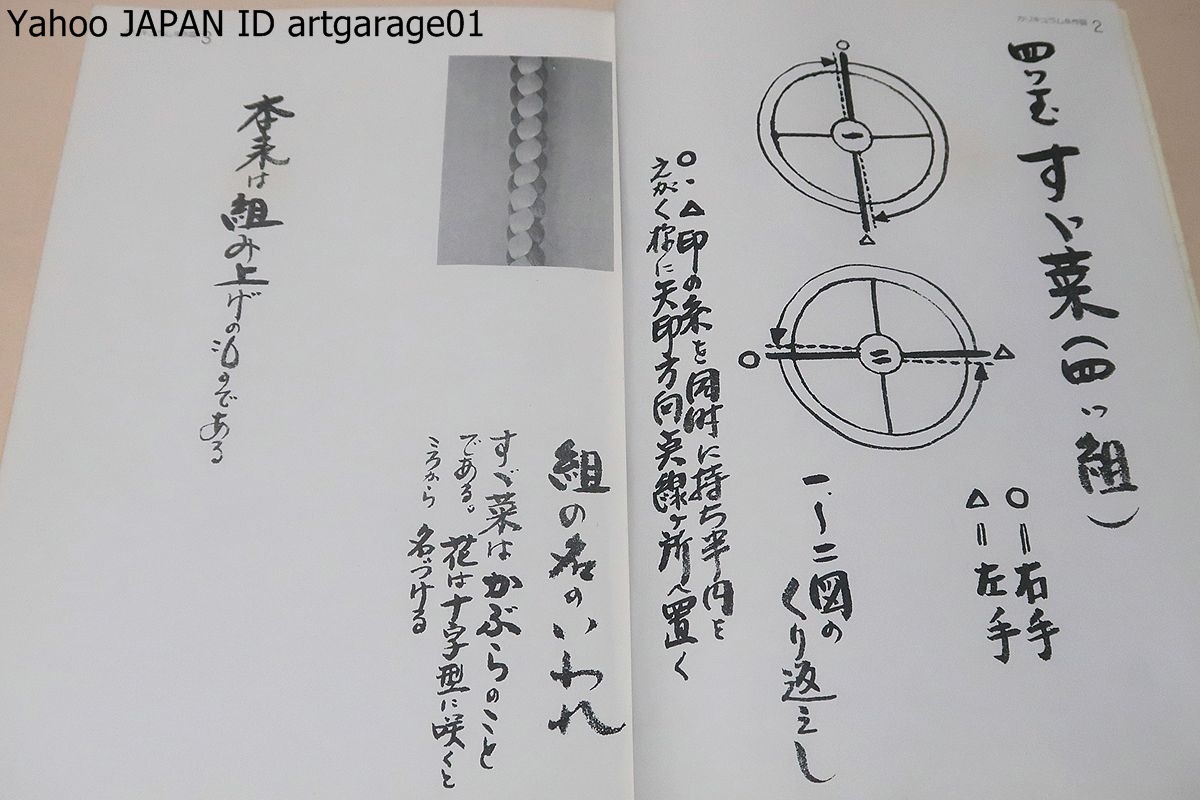 Yahoo JAPAN ID artgarage01
カリキュラム&作品 2
四ッ玉 すゞ菜(四ッ組)
○=右手
△=左手
一
二
一、〜二図の
くり返えし
○・△印の糸を同時に持ち半円を
えがく様に矢印方向点線ヶ所へ置く
3
組の名のいわれ
すゞ菜はかぶらのこと
である。花は十字型に咲くと
ころから名づける
本来は組み上げのものである